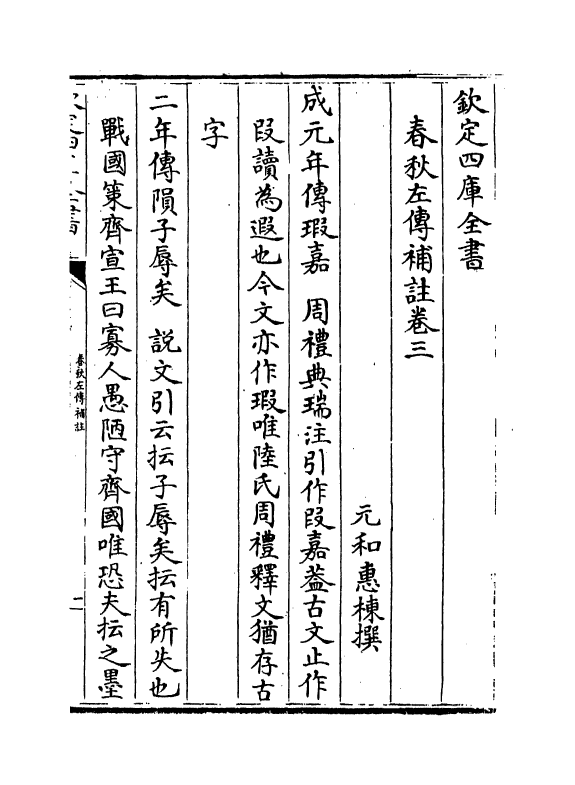 欽定四庫全書
春秋左傳補註卷三
元和惠棟撰
成元年傳瑕嘉　周禮典瑞注引作叚嘉葢古文止作
叚讀為遐也今文亦作瑕唯陸氏周禮釋文猶存古
字
二年傳隕子辱矣　説文引云抎子辱矣抎有所失也
戰國策齊宣王曰寡人愚陋守齊國唯恐夫抎之墨
春秋左傳補註